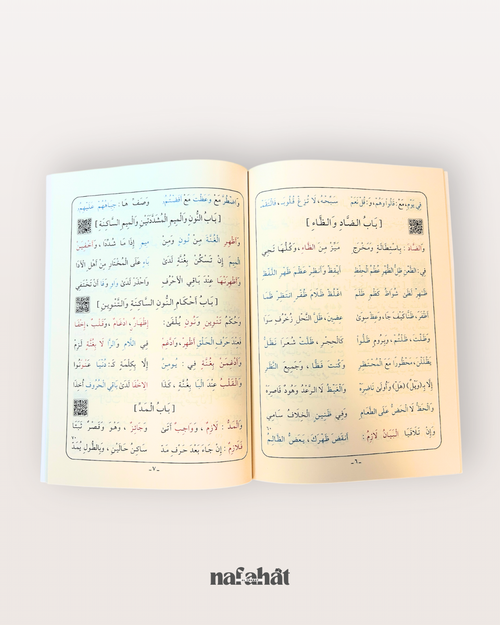 فِي يَوْمِ مَعْ: قَالُوا وَهُمْ، وَقُلْ نَعَمْ سَبِّحْهُ، لَا تُزِغْ قُلُوبَ، فَالْتَقَمْ
[ بَابُ الضَّادِ وَالظَّاءِ ]
وَالضَّادَ: بِاسْتِطَالَةٍ وَمَخْرَجِ مَيِّزْ مِنَ الظَّاءِ، وَكُلُّهَا تَجِي
فِي: الظَّعْنِ ظِلُّ الظُّهْرِ عُظْمُ الْحِفْظِ أَيْقِظْ وَأَنْظِرْ عَظْمَ ظَهْرِ اللَّفْظِ
ظَاهِرْ لَظَى شُوَاظُ كَظْمٍ ظَلَمَا اُغْلُظْ ظَلَامَ ظُفُرٍ انْتَظِرْ ظَمَا
أَظْفَرَ ظَنًّا كَيْفَ جَا، وَعِظْ سِوَى عِضِينَ، ظَلَّ النَّحْلِ زُخْرُفٍ سَوَا
وَظَلْتَ، ظَلْتُمْ، وَبِرُومٍ ظَلُّوا كَالْحِجْرِ، ظَلَّتْ شُعَرَا نَظَلُّ
يَظْلَلْنَ، مَحْظُورًا مَعَ الْمُحْتَظِرِ وَكُنْتَ فَظًّا، وَجَمِيعِ النَّظَرِ
إِلَّا بِـ(وَيْلٌ) (هَلْ) وَأُولَى نَاضِرَهْ وَالْغَيْظِ لَا الرَّعْدُ وَهُودٌ قَاصِرَهْ
وَالْحَظِّ لَا الْحَضُّ عَلَى الطَّعَامِ وَفِي ظَنِينٍ الْخِلَافُ سَامِي
وَإِنْ تَلَاقَيَا الْبَيَانُ لَازِمُ: أَنْقَضَ ظَهْرَكَ، يَعَضُّ الظَّالِمُ
-٦-
وَاضْطُرَّ مَعْ وَعَظْتَ مَعْ أَفَضْتُمُ وَصَفِّ هَا: جِبَاهُهُمْ عَلَيْهِمُ
[ بَابُ النُّونِ وَالْمِيمِ الْمُشَدَّدَتَيْنِ وَالْمِيمِ السَّاكِنَةِ ]
وَأَظْهِرِ الْغُنَّةَ مِنْ نُونٍ وَمِنْ مِيمٍ إِذَا مَا شُدِّدَا، وَأَخْفِيَنْ
الْمِيمَ إِنْ تَسْكُنْ بِغُنَّةٍ لَدَى بَاءٍ عَلَى الْمُخْتَارِ مِنْ أَهْلِ الْأَدَا
وَأَظْهِرَنْهَا عِنْدَ بَاقِي الْأَحْرُفِ وَاحْذَرْ لَدَى وَاوٍ وَفَا أَنْ تَخْتَفِي
[ بَابُ أَحْكَامِ النُّونِ السَّاكِنَةِ وَالتَّنْوِينِ ]
وَحُكْمُ تَنْوِينٍ وَنُونٍ يُلْفَى: إِظْهَارٌ، ادْغَامٌ، وَقَلْبٌ، إِخْفَا
فَعِنْدَ حَرْفِ الْحَلْقِ أَظْهِرْ، وَادَّغِمْ فِي اللَّامِ وَالرَّا لَا بِغُنَّةٍ لَزِمْ
وَأَدْغِمَنْ بِغُنَّةٍ فِي: يُومِنُ إِلَّا بِكِلْمَةٍ كَـ: دُنْيَا عَنْوَنُوا
وَالْقَلْبُ عِنْدَ الْبَا بِغُنَّةٍ، كَذَا الِاخْفَا لَدَى بَاقِي الْحُرُوفِ أُخِذَا
[ بَابُ الْمَدِّ ]
وَالْمَدُّ: لَازِمٌ، وَوَاجِبٌ أَتَى وَجَائِزٌ، وَهْوَ وَقَصْرٌ ثَبَتَا
فَلَازِمٌ: إِنْ جَاءَ بَعْدَ حَرْفِ مَدّْ سَاكِنُ حَالَيْنِ، وَبِالطُّولِ يُمَدّْ
-٧-
nafahät